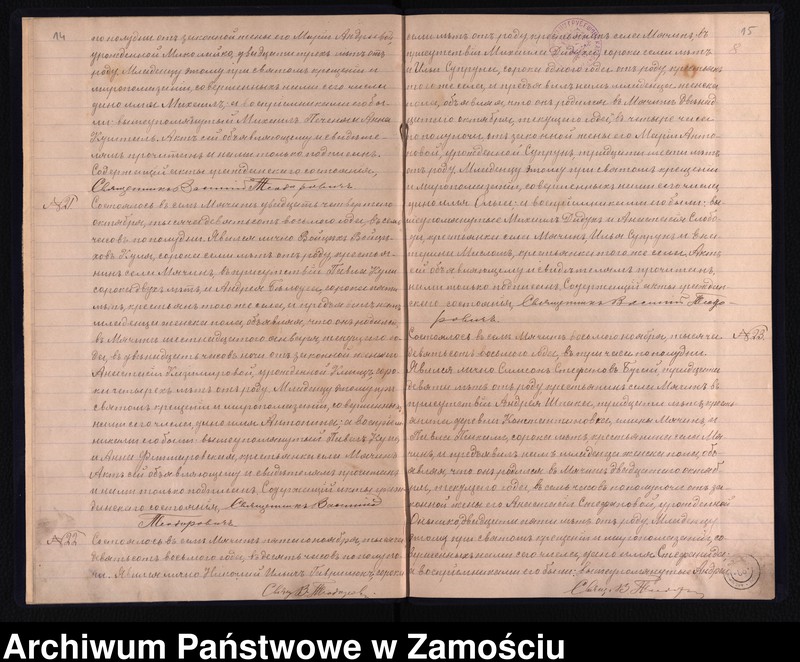 14
пополудни отъ законной жены его Маріи Андреевой
урожденной двадцати трехъ лѣтъ отъ
роду. Младенцу этому при святомъ крещеніи и
мѵропомазаніи, совершенныхъ нами сего числа
дано имя Михаилъ, и воспріемниками его бы-
ли: вышеупомянутый Михаилъ и Анна
Актъ сей объявляющему и свидѣте-
лямъ прочитанъ и нами только подписанъ.
Содержащій акты гражданскаго состоянія,
Священникъ Василій Теодоровичъ
№ 21
Состоялось въ селѣ Мячинъ двадцать четвертаго
октября, тысяча девятьсотъ восьмого года, въ семь
часовъ пополудни. Явился лично Войцѣхъ Войцѣ-
ховъ Кула, сорока семи лѣтъ отъ роду, крестья-
нинъ села Мячинъ, въ присутствіи Павла Кули
сорока двухъ лѣтъ, и Андрея сорока пяти
лѣтъ, крестьянъ того же села, и предъявилъ намъ
младенца женска пола, объявляя, что онъ родился
въ Мячинѣ шестнадцатаго января, текущаго го-
да, въ двѣнадцать часовъ ночи отъ законной жены его
Анастасіи Казиміровой, урожденной соро-
ка четырехъ лѣтъ отъ роду. Младенцу этому при
святомъ крещеніи и мѵропомазаніи, совершенныхъ
нами сего числа, дано имя Антонина, а воспріем-
никами его были: вышеупомянутый Павелъ Кула
и Анна крестьянка села Мячинъ.
Актъ сей объявляющему и свидѣтелямъ прочитанъ
и нами только подписанъ. Содержащій акты граж-
данскаго состоянія, Священникъ Василій
Теодоровичъ
№ 22
Состоялось въ селѣ Мячинъ пятаго ноября, тысяча
девятьсотъ восьмого года, въ десять часовъ пополуд-
ни. Явился лично Николай Ильинъ сорока
Свящ. В. Теодоров.
15
8
семи лѣтъ отъ роду, крестьянинъ села Мячинъ, въ
присутствіи Михаила Дидука, сорока семи лѣтъ
и Ильи Супруна, сорока одного года отъ роду, крестьянъ
того же села, и предъявилъ намъ младенца женска
пола, объявляя, что онъ родился въ Мячинѣ двѣнад-
цатаго октября, текущаго года, въ четыре часа
пополуночи, отъ законной жены его Маріи Анто-
новой, урожденной Супрунъ, тридцати шести лѣтъ
отъ роду. Младенцу этому при святомъ крещеніи
и мѵропомазаніи, совершенныхъ нами сего числа
дано имя Ольга; и воспріемниками его были: вы-
шеупомянутые Михаилъ Дидукъ и Анастасія Слобо-
да, крестьянка села Мячинъ, Илья Супрунъ и Ека-
терина крестьянка того же села. Актъ
сей объявляющему и свидѣтелямъ прочитанъ,
нами только подписанъ. Содержащій акты граждан-
скаго состоянія, Священникъ Василій Теодо-
ровичъ.
№ 23.
Состоялось въ селѣ Мячинъ восьмого ноября, тысяча
девятьсотъ восьмого года, въ три часа пополудни.
Явился лично Симеонъ Стефановъ тридцати
девяти лѣтъ отъ роду, крестьянинъ села Мячинъ въ
присутствіи Андрея тридцати лѣтъ, кресть-
янина деревни Константиновка, гмины Мячинъ и
Павла сорока лѣтъ, крестьянина села Мя-
чинъ, и предъявилъ намъ младенца женска пола, объ-
являя, что онъ родился въ Мячинѣ двадцатаго октяб-
ря, текущаго года, въ семь часовъ пополуночи отъ за-
конной жены его Анастасіи Стефановой, урожденной
двадцати пяти лѣтъ отъ роду. Младенцу
этому при святомъ крещеніи и мѵропомазаніи, со-
вершенныхъ нами сего числа, дано имя Стефанида
а воспріемниками его были: вышеупомянутый Андрей
Свящ. В. Теодоров
Archiwum Państwowe w Zamościu